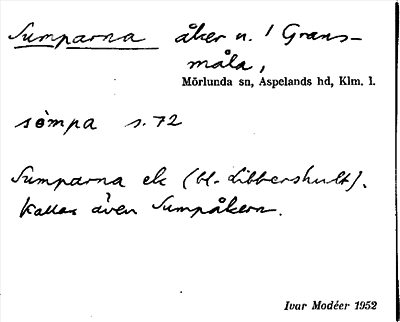 Sumparna åker n. 1 Grans-
måla,
Mörlunda sn, Aspelands hd, Klm. l.
sömpa s. 72
Sumparna ek (bl. Libbershult).
Kallas även Sumpåkern.
Ivar Modéer 1952